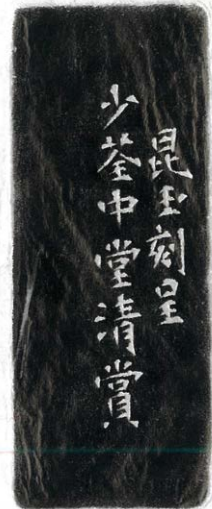 昆玉刻呈
少荃中堂清賞